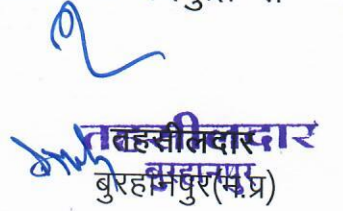 तहसीलदार
तहसीलदार
बुरहानपुर
बुरहानपुर(म.प्र)